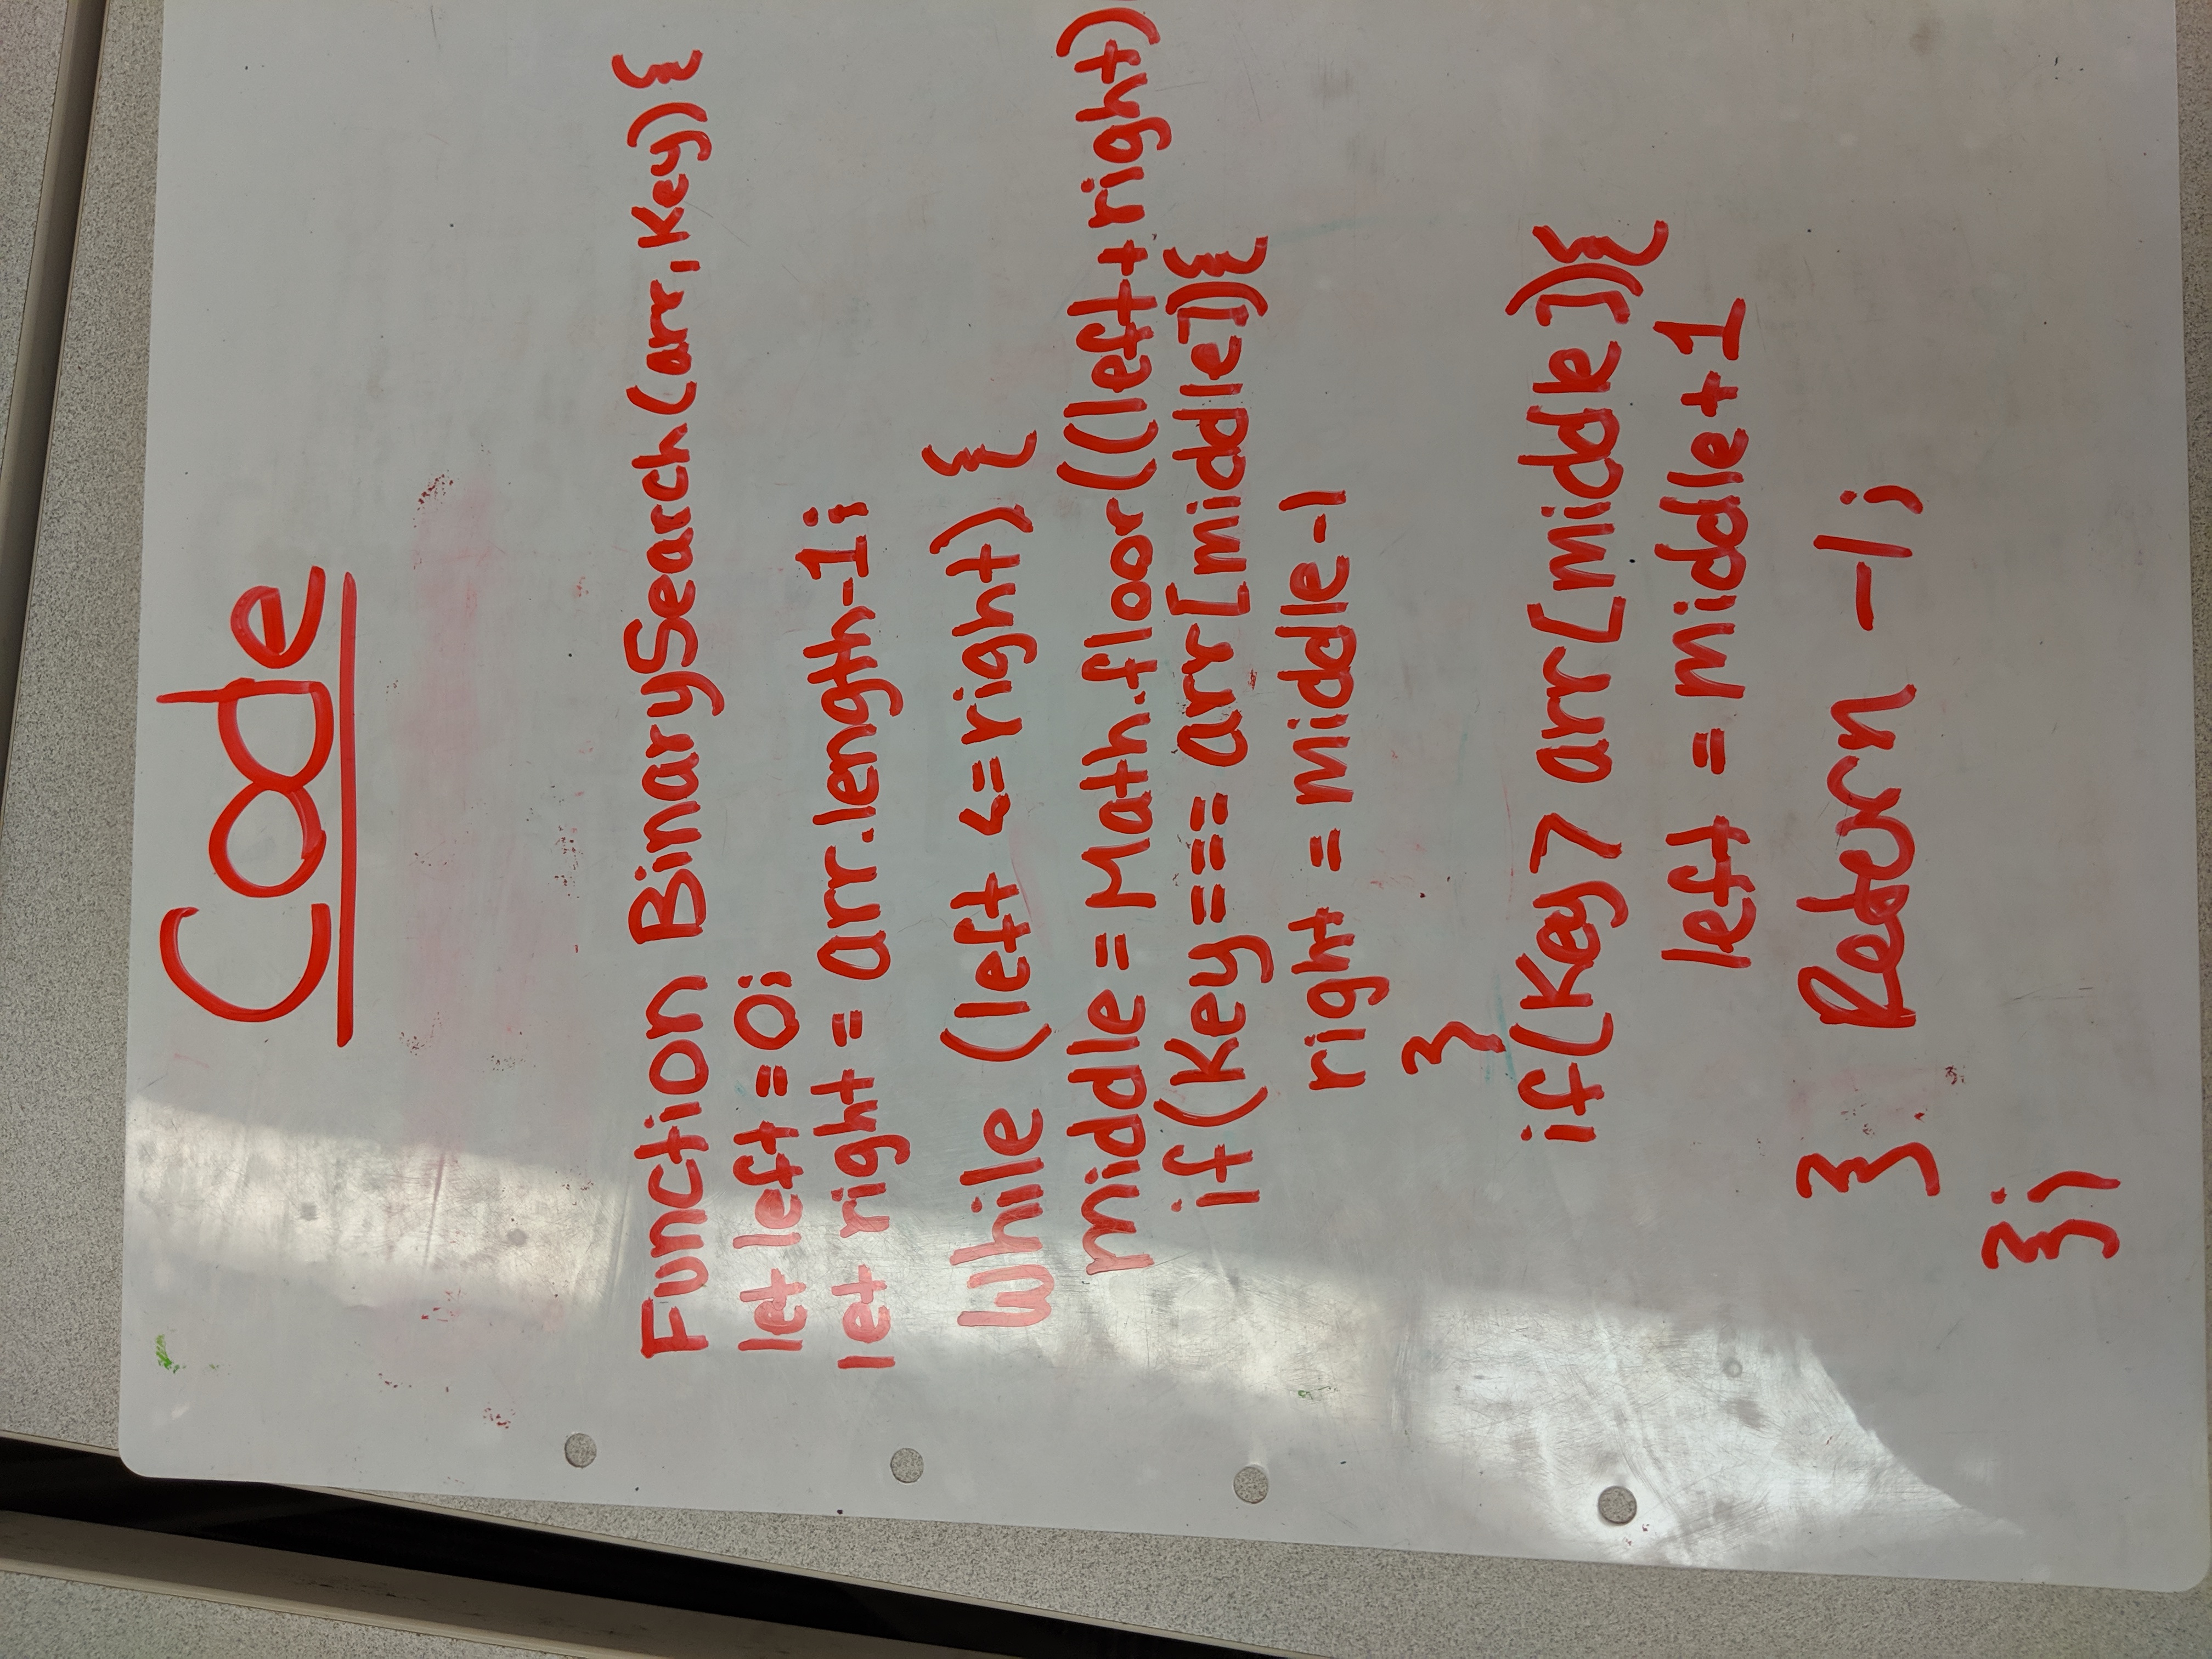 Code
Function BinarySearch(arr, Key) {
let left = 0;
let right = arr.length-1;
While (left <= right) {
middle = Math.floor((left + right)
if (Key === arr[middle]) {
right = middle -1
}
if (Key > arr[middle]) {
left = middle + 1
} Return -1;
};